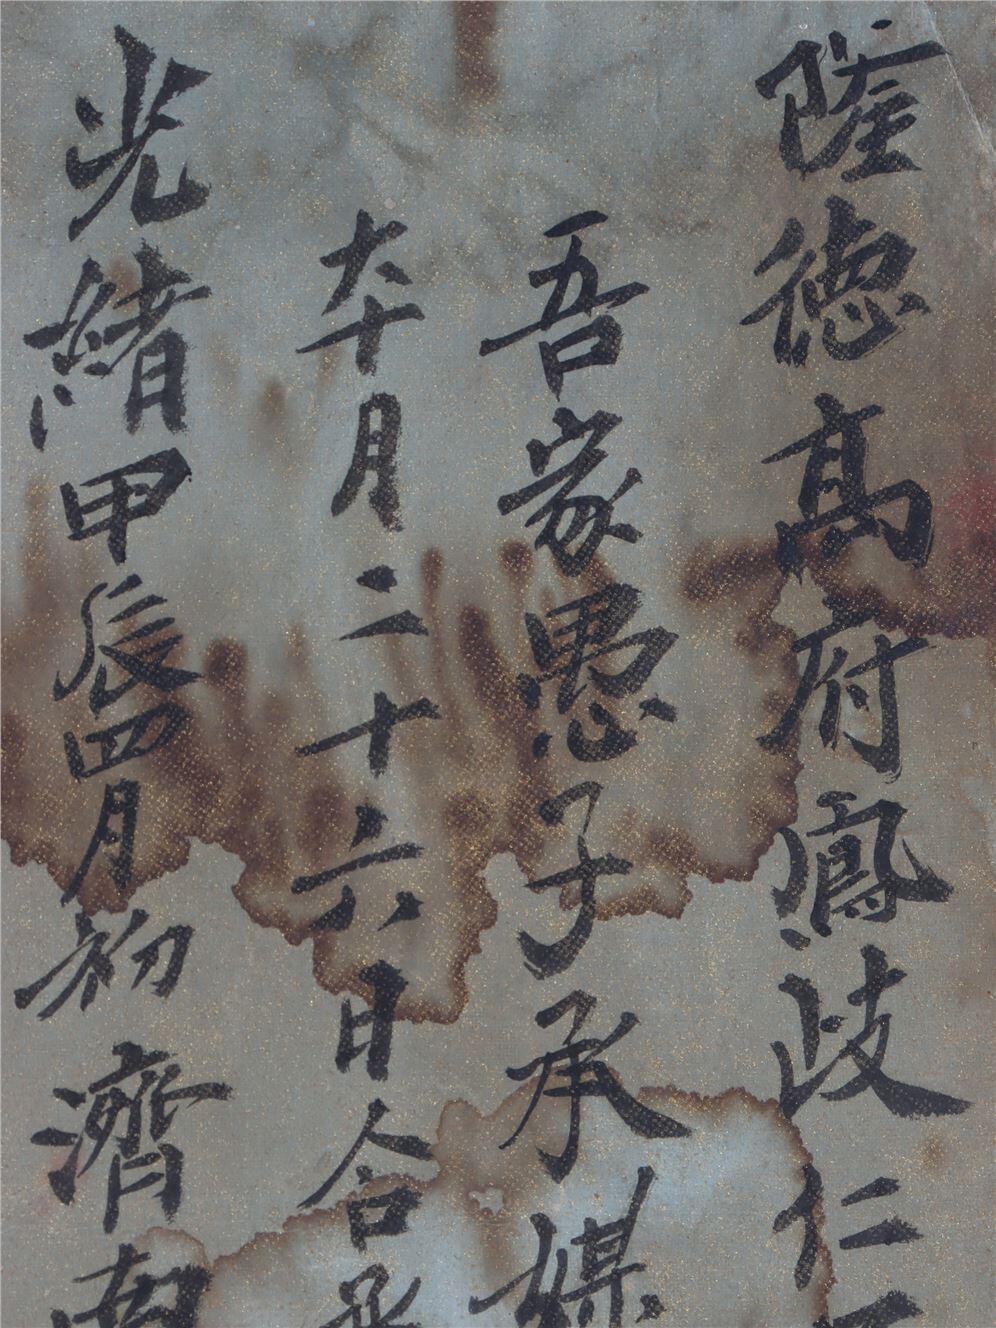 隆德高府鳳歧仁
吾家愚子承媒
六十月二十六日合丞
光緒甲辰四月初濟南